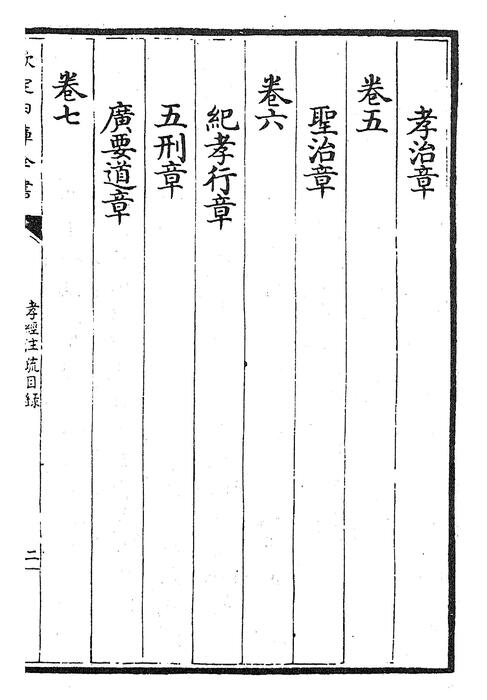 孝治章
卷五
聖治章
卷六
紀孝行章
五刑章
廣要道章
卷七
欽定四庫全書
孝經注疏目録
二